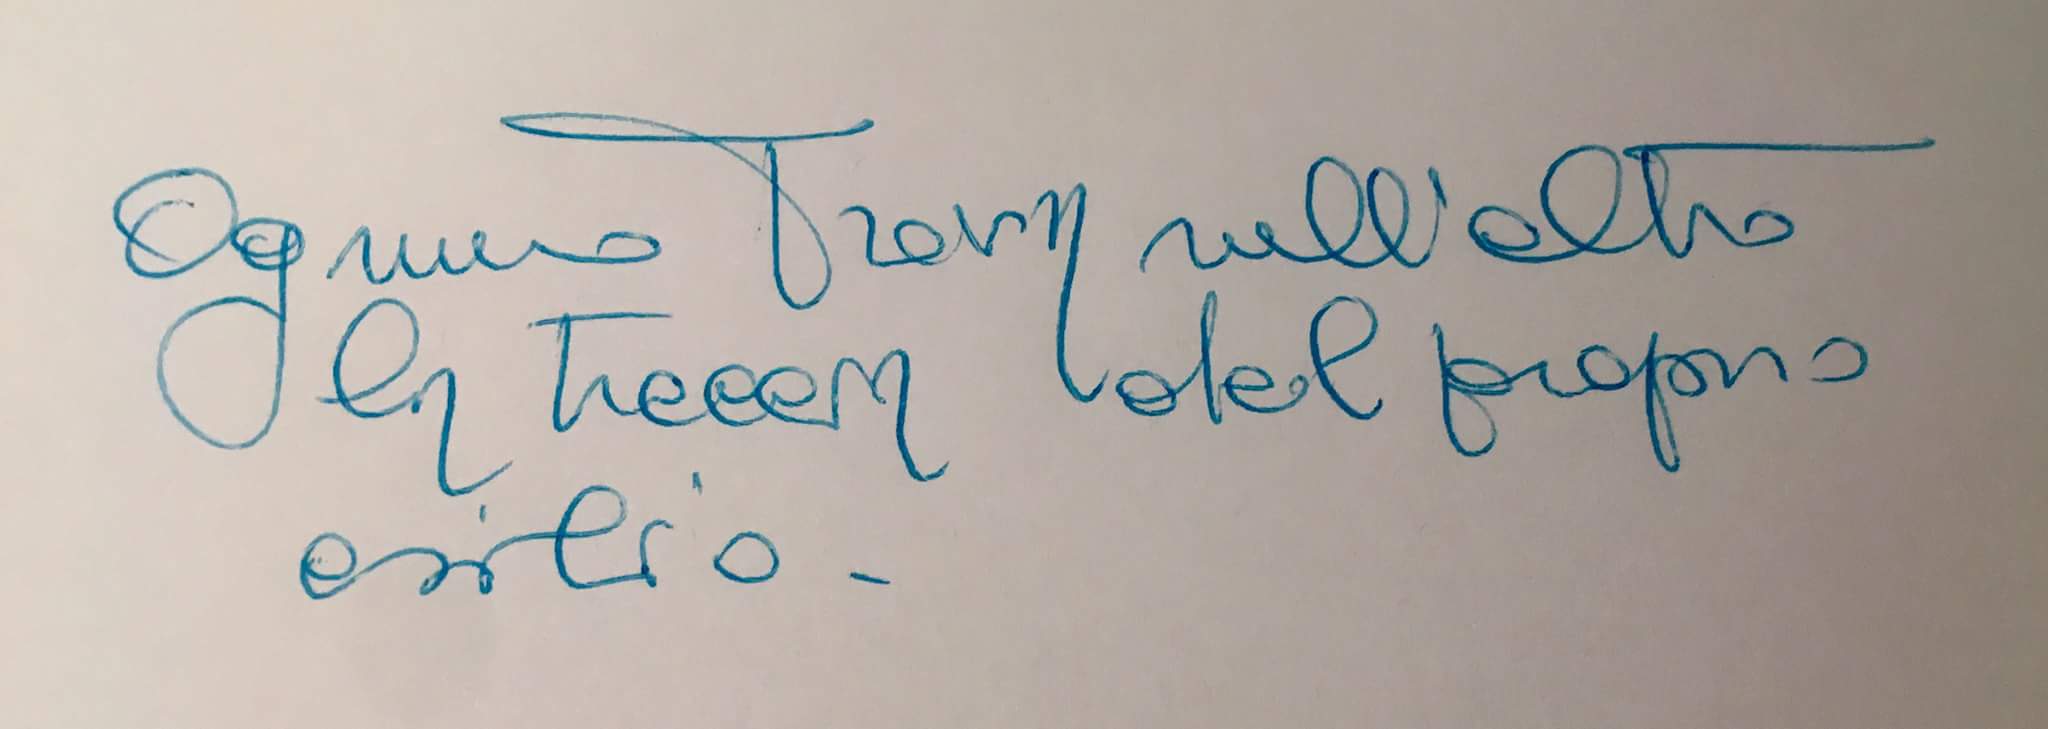 Ognuno trova nell'altro
la traccia del proprio
esilio.